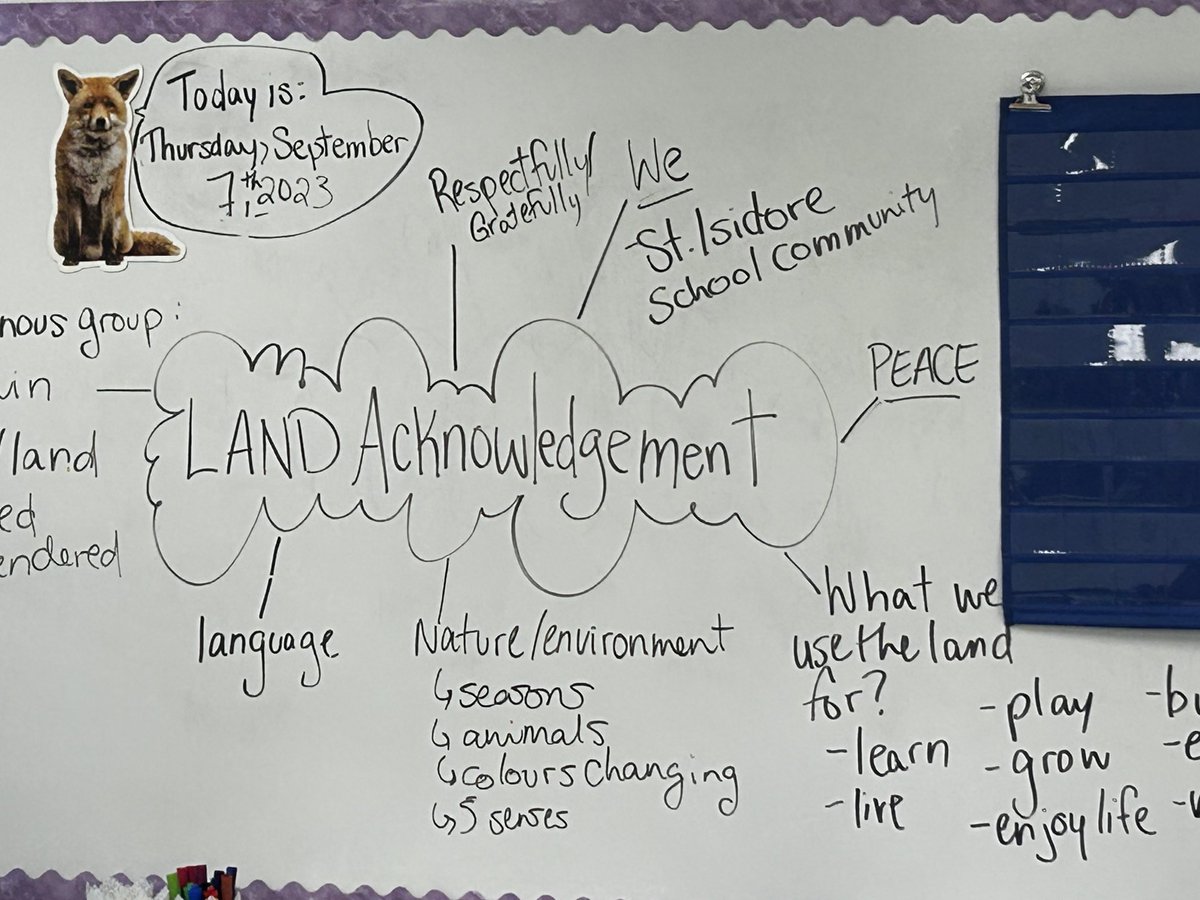 Today is:
Thursday, September
7th, 2023
Respectfully/
Gratefully
We
-St. Isidore
School community
nous group:
in
/land
ed
endered
LAND Acknowledgement
PEACE
language
Nature/environment
↳ seasons
↳ animals
↳ colours changing
↳ 5 senses
What we
use the land
for?
-learn
-live
-play
-grow
-enjoy life